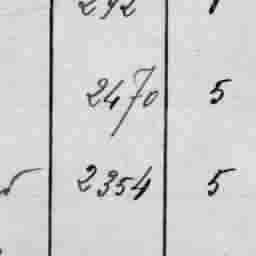 292
2470 5
2354 5